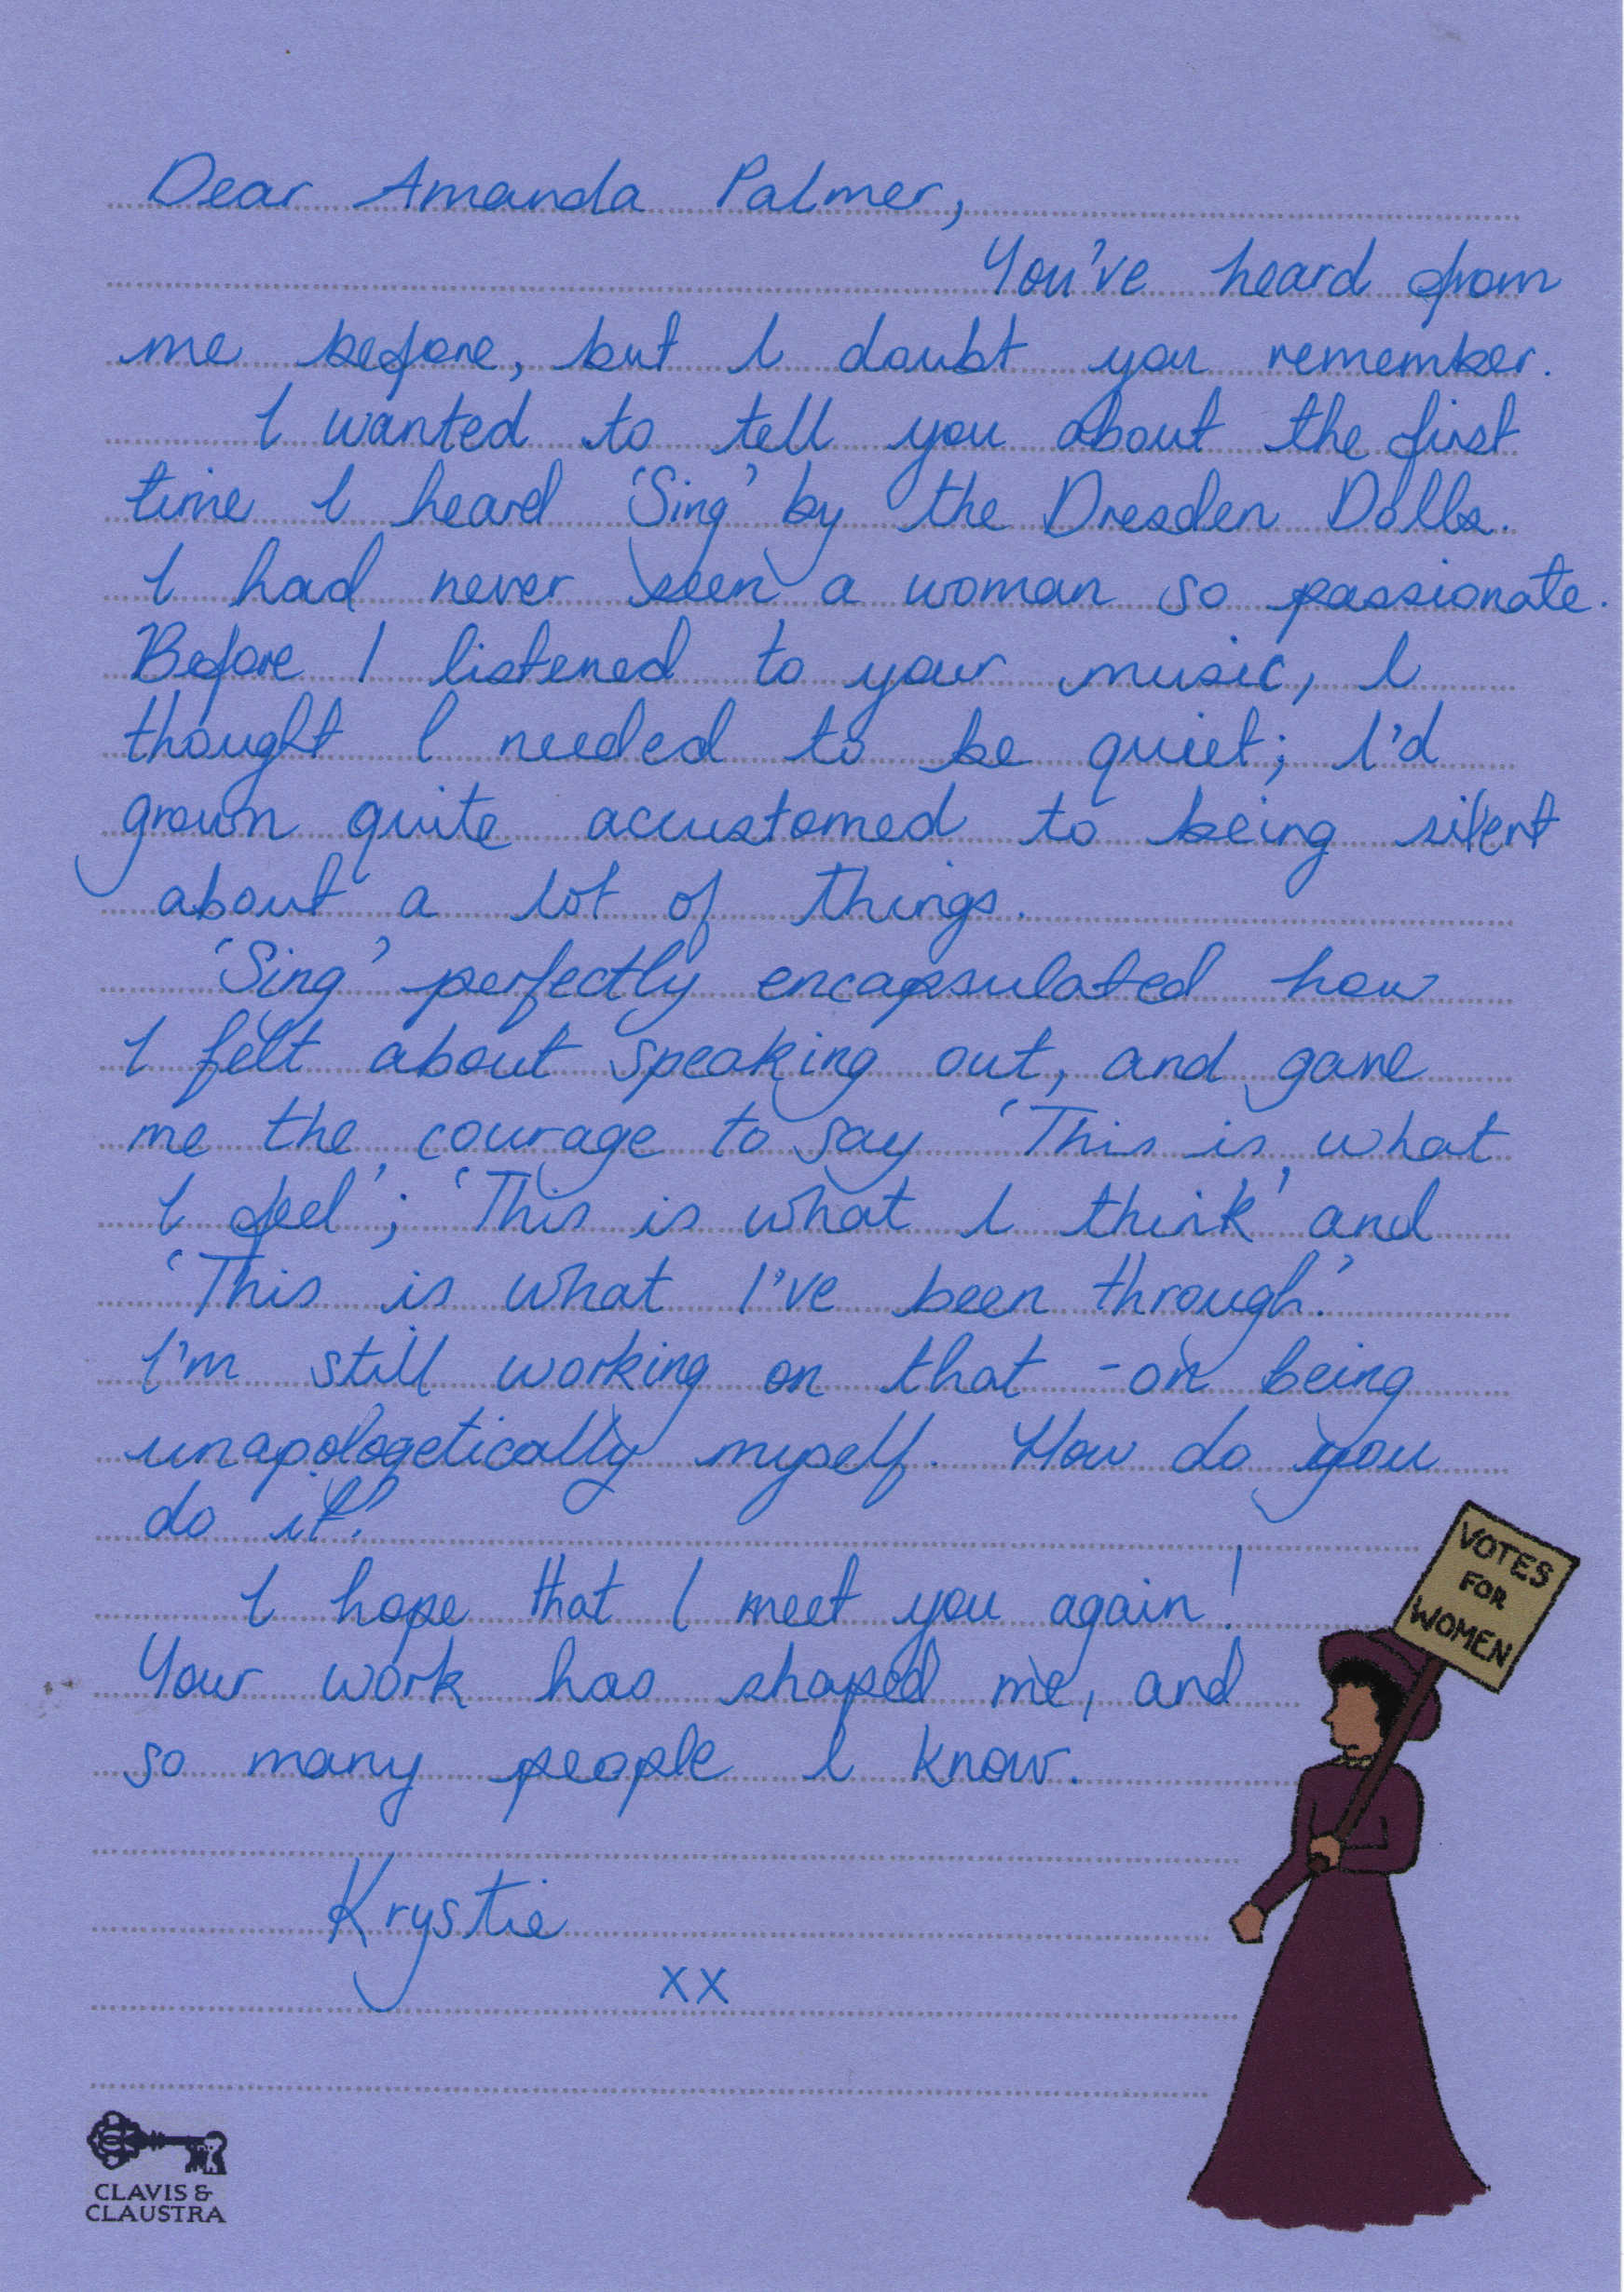 Dear Amanda Palmer,
You've heard from
me before, but I doubt you remember.
I wanted to tell you about the first
time I heard 'Sing' by the Dresden Dolls.
I had never seen a woman so passionate.
Before I listened to your music, I
thought I needed to be quiet; I'd
grown quite accustomed to being silent
about a lot of things.
'Sing' perfectly encapsulated how
I felt about speaking out, and gave
me the courage to say 'This is what
I feel'; 'This is what I think' and
'This is what I've been through.'
I'm still working on that - on being
unapologetically myself. How do you
do it?
I hope that I meet you again!
Your work has shaped me, and
so many people I know.
Krystie
xx
VOTES
FOR
WOMEN
CLAVIS &
CLAUSTRA